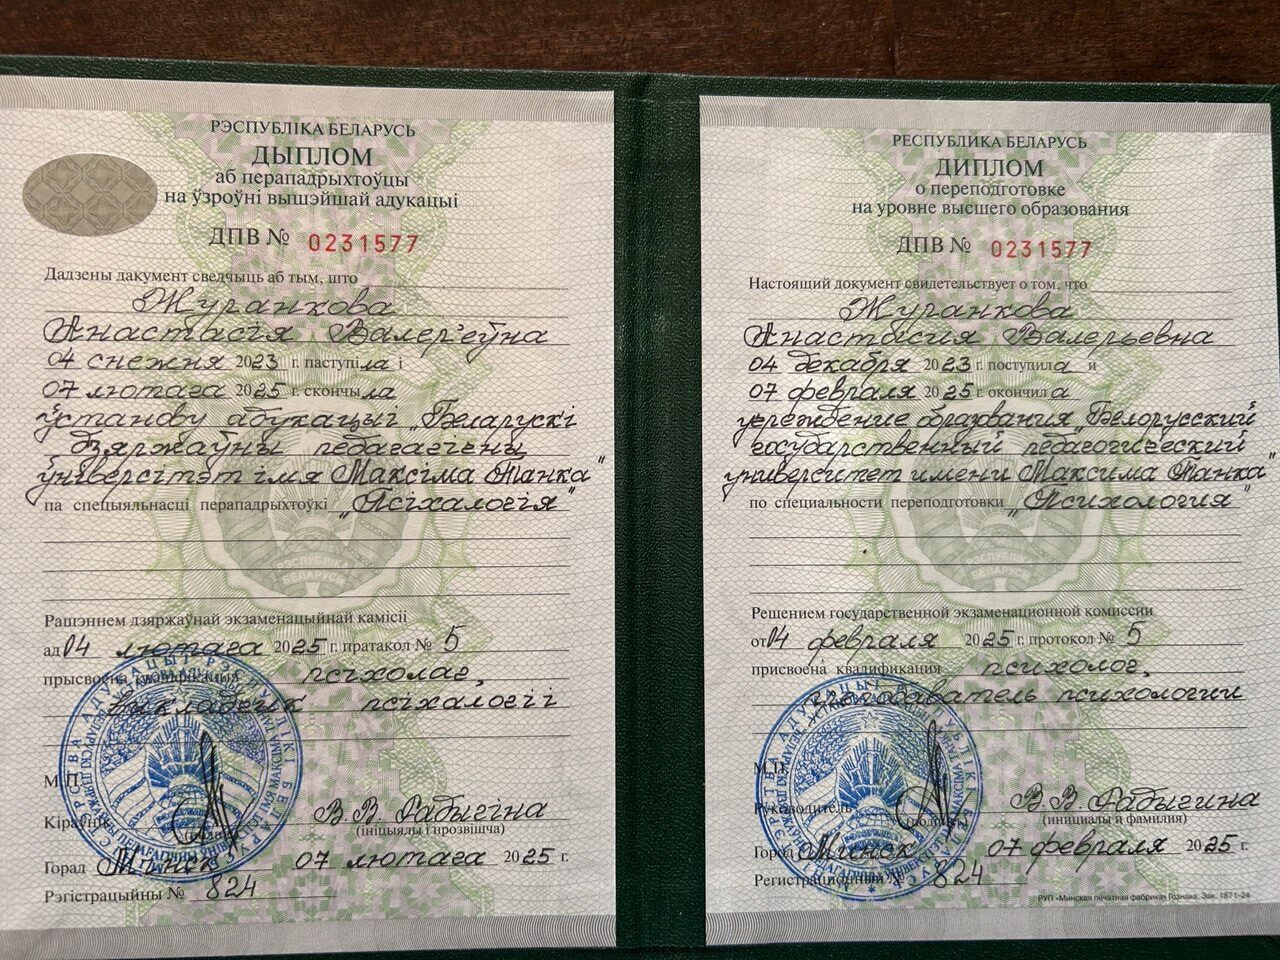 РЭСПУБЛІКА БЕЛАРУСЬ
ДЫПЛОМ
аб перападрыхтоўцы
на ўзроўні вышэйшай адукацыі
ДПВ № 0231577
Дадзены дакумент сведчыць аб тым, што
Журанкова
Анастасія Валер'еўна
04 снежня 2023 г. паступіла і
07 лютага 2025 г. скончыла
ўстанову адукацыі "Беларускі
дзяржаўны педагагічны
ўніверсітэт імя Максіма Танка"
па спецыяльнасці перападрыхтоўкі "Псіхалогія"
РЭСПУБЛІКА
БЕЛАРУСЬ
Рашэннем дзяржаўнай экзаменацыйнай камісіі
ад 04 лютага 2025 г. пратакол № 5
прысвоена кваліфікацыя псіхолаг,
выкладчык псіхалогіі
М.П.
Кіраўнік В.В. Радыгіна
(ініцыялы і прозвішча)
Горад Мінск 07 лютага 2025 г.
Рэгістрацыйны № 824
РЕСПУБЛИКА БЕЛАРУСЬ
ДИПЛОМ
о переподготовке
на уровне высшего образования
ДПВ № 0231577
Настоящий документ свидетельствует о том, что
Журанкова
Анастасия Валерьевна
04 декабря 2023 г. поступила и
07 февраля 2025 г. окончила
учреждение образования "Белорусский
государственный педагогический
университет имени Максима Танка"
по специальности переподготовки "Психология"
РЭСПУБЛІКА
БЕЛАРУСЬ
Решением государственной экзаменационной комиссии
от 04 февраля 2025 г. протокол № 5
присвоена квалификация психолог,
преподаватель психологии
М.П.
Руководитель В.В. Радыгина
(инициалы и фамилия)
Город Минск 07 февраля 2025 г.
Регистрационный № 824
РУП «Минская печатная фабрика» Гознака. Зак. 1871-24